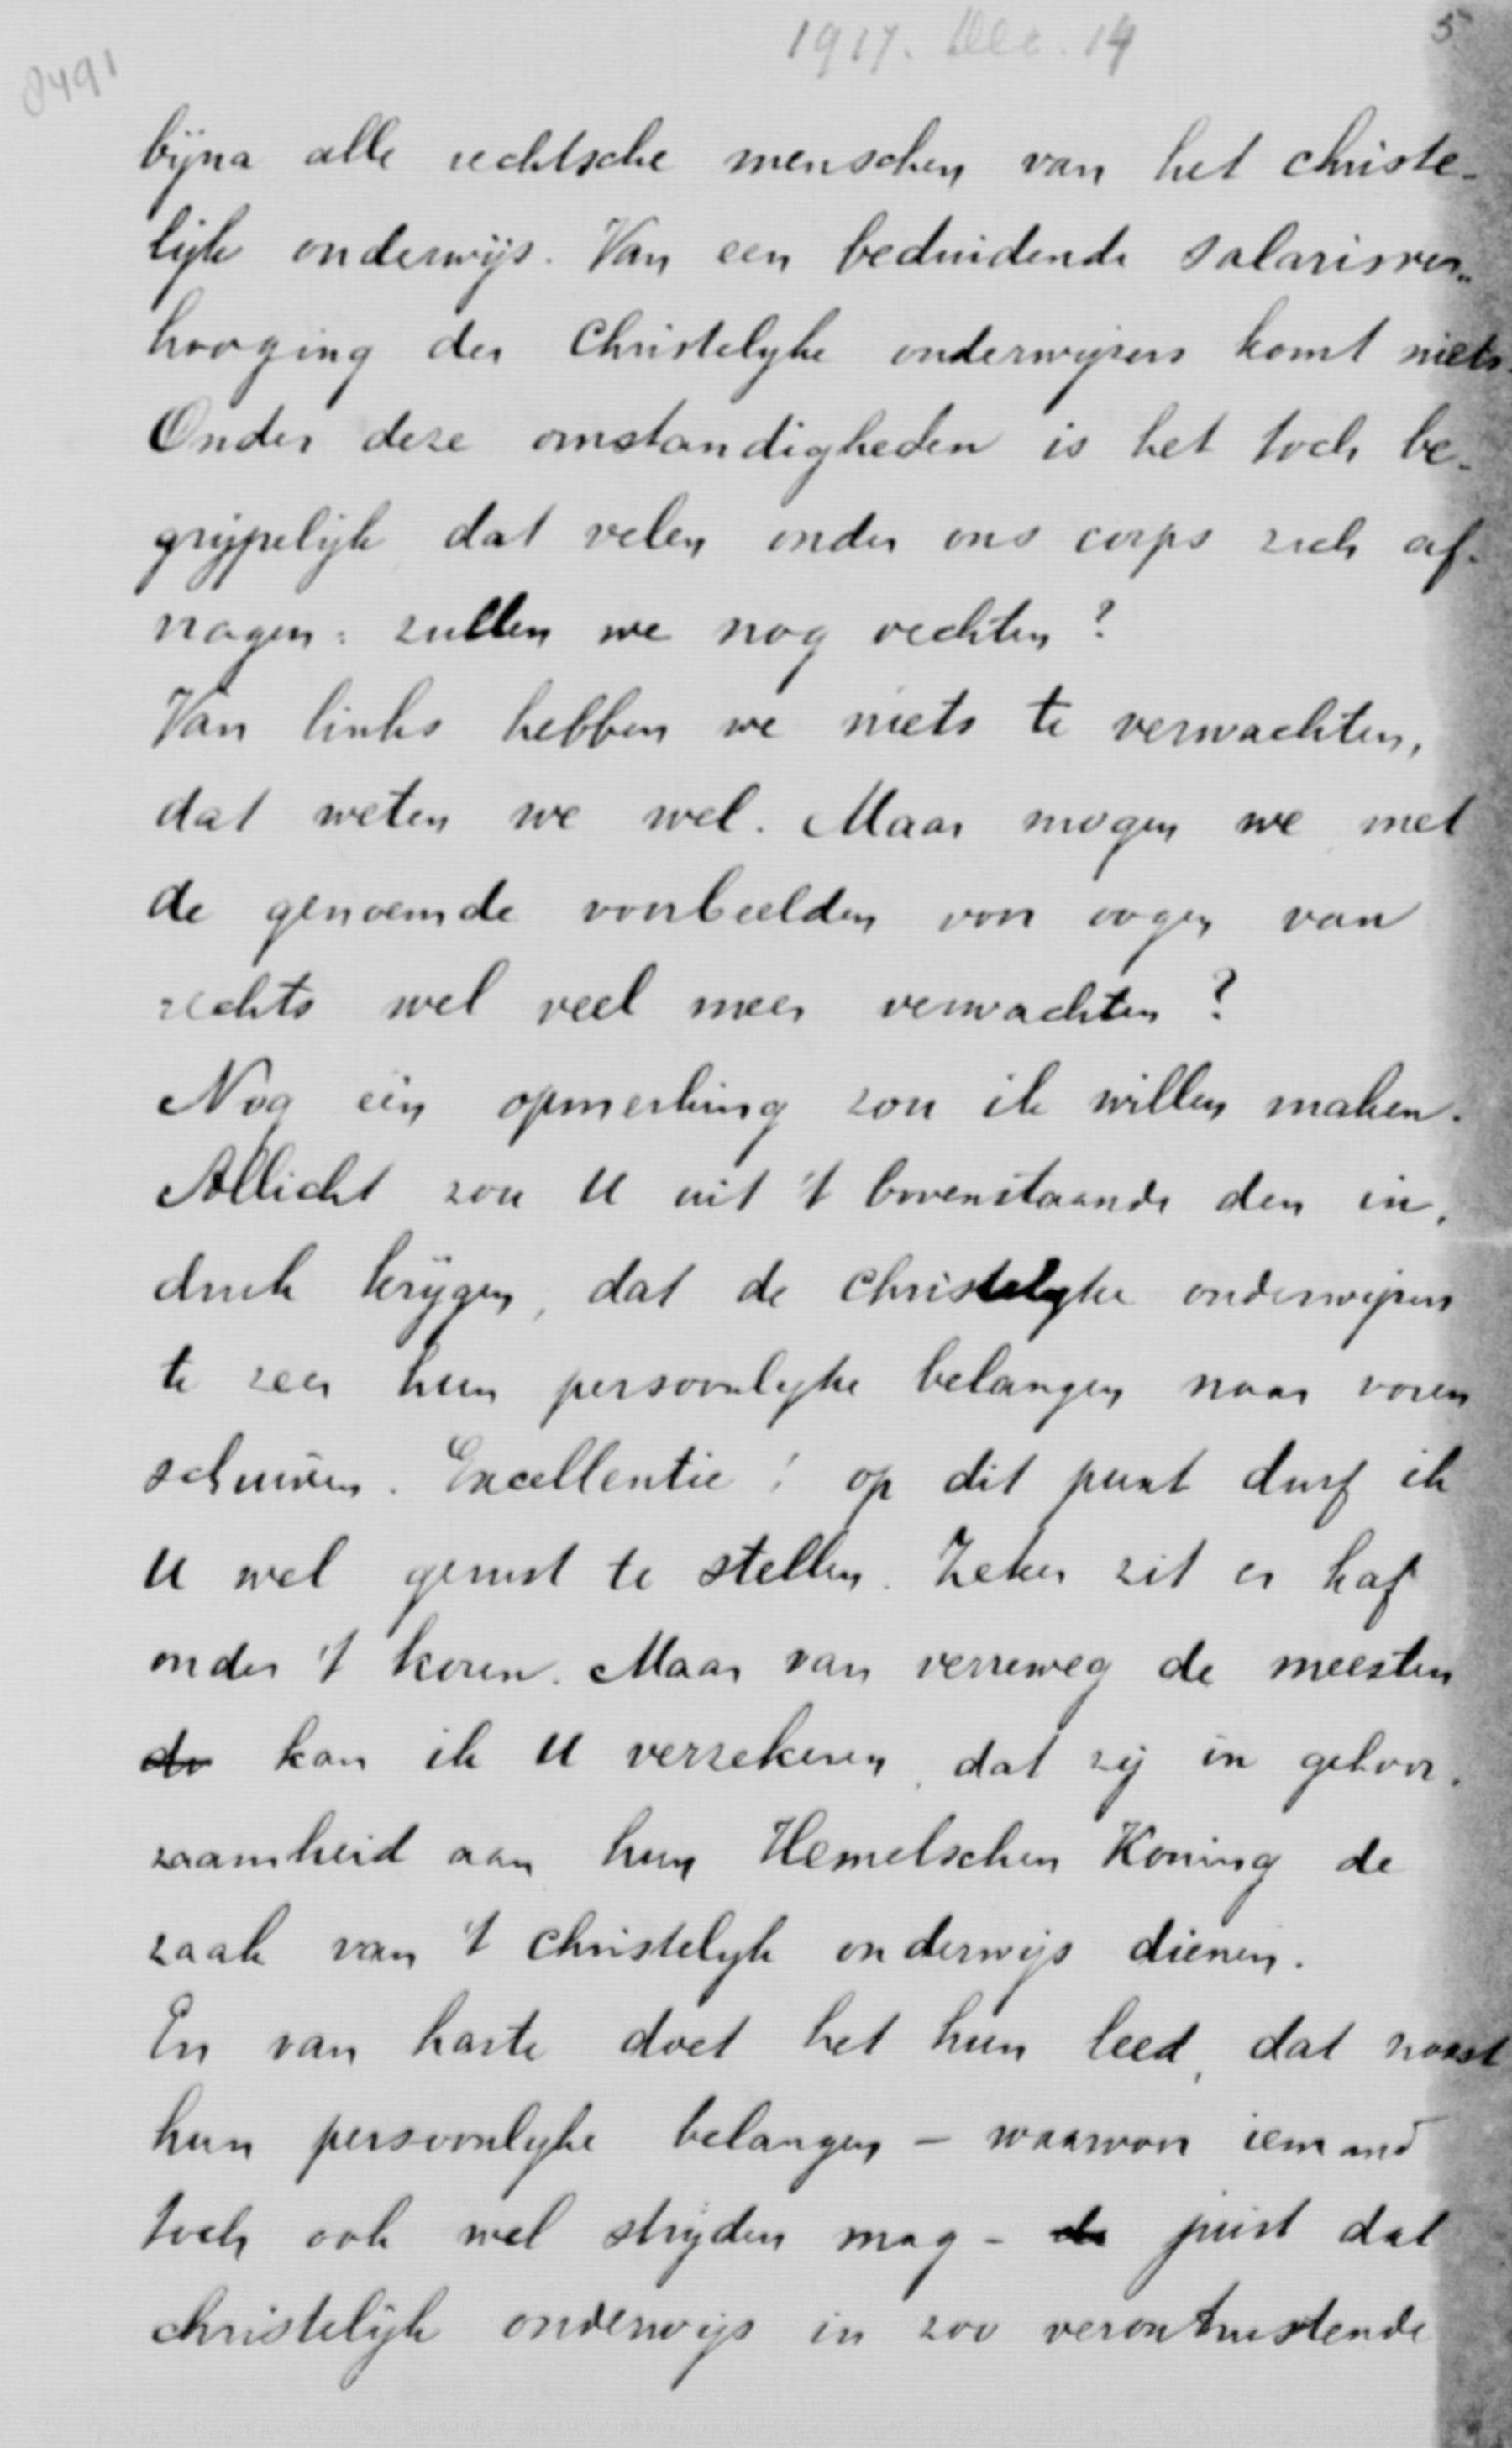 1917. Dec. 14
5
8491
bijna alle rechtsche menschen van het christe-
lijk onderwijs. Van een beduidende salarisver-
hooging der Christelyke onderwyzers komt niets.
Onder deze omstandigheden is het toch be-
grijpelijk dat velen onder ons corps zich af-
vragen: zullen we nog vechten?
Van links hebben we niets te verwachten,
dat weten we wel. Maar mogen we met
de genoemde voorbeelden voor oogen van
rechts wel veel meer verwachten?
Nog één opmerking zou ik willen maken.
Allicht zou U uit 't bovenstaande den in-
druk krijgen, dat de christelyke onderwijzers
te zeer hun persoonlyke belangen naar voren
schuiven. Excellentie! op dit punt durf ik
U wel gerust te stellen. Zeker zit er kaf
onder 't koren. Maar van verreweg de meesten
de kan ik U verzekeren, dat zij in gehoor-
zaamheid aan hun Hemelschen Koning de
zaak van 't christelyk onderwijs dienen.
En van harte doet het hun leed, dat naast
hun persoonlyke belangen - waarvoor iemand
toch ook wel stryden mag - de juist dat
christelijk onderwijs in zoo verontrustende